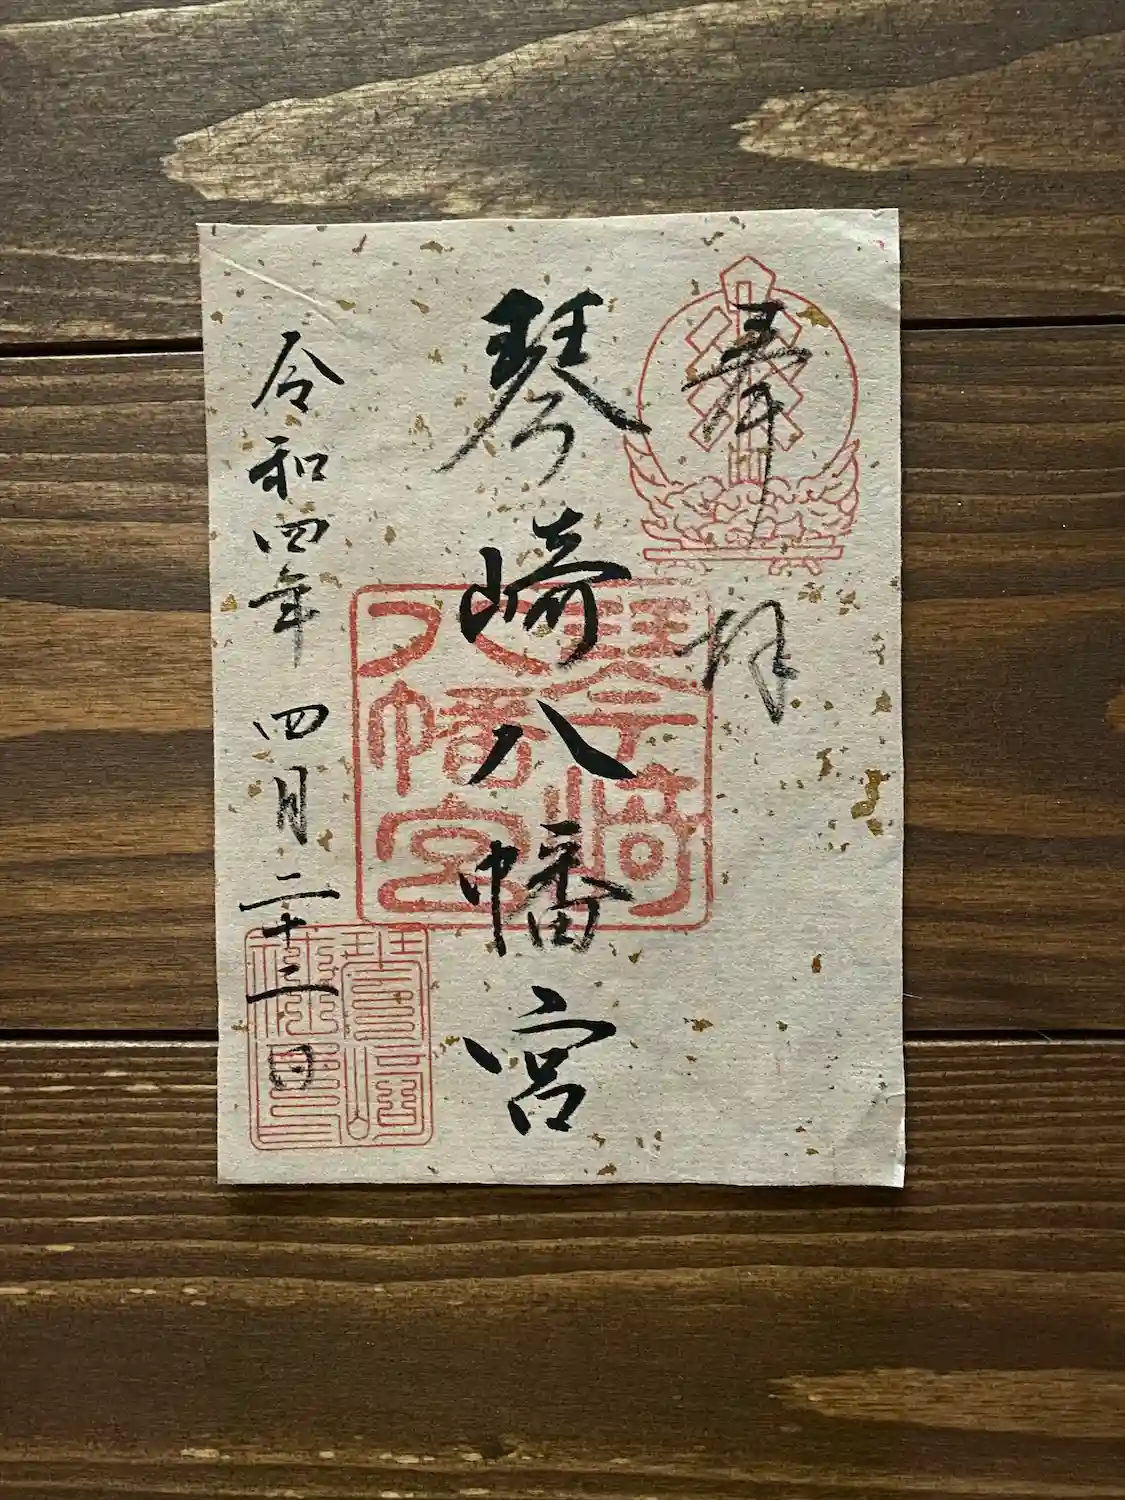 奉拝
琴崎八幡宮
琴崎
八幡宮
令和四年四月二十二日